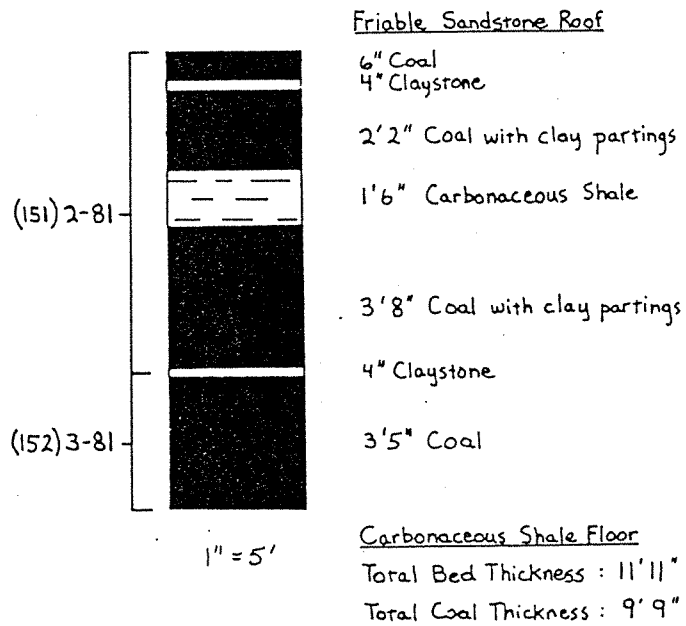 Friable Sandstone Roof
6" Coal
4" Claystone
2'2" Coal with clay partings
1'6" Carbonaceous Shale
(151) 2-81
3'8" Coal with clay partings
4" Claystone
(152) 3-81
3'5" Coal
1" = 5'
Carbonaceous Shale Floor
Total Bed Thickness : 11'11"
Total Coal Thickness : 9'9"